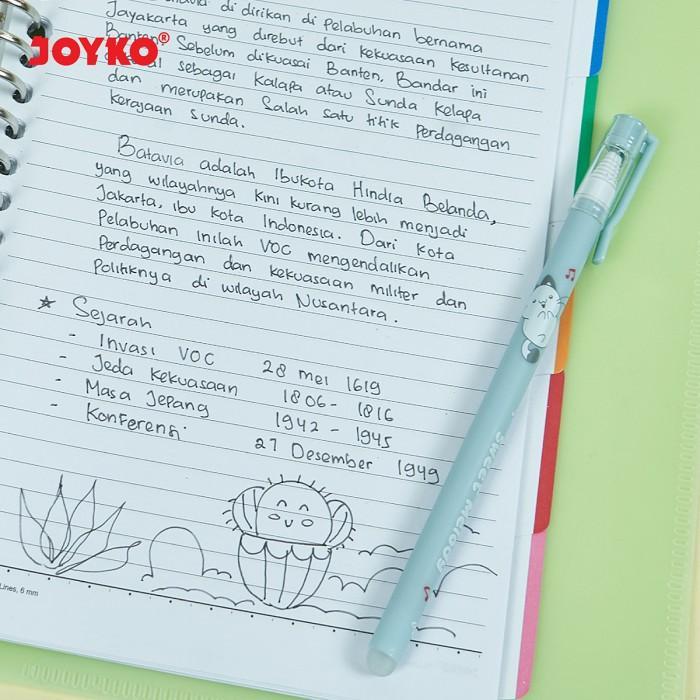 di dirikan di Pelabuhan bernama
Jayakarta yang direbut dari kekuasaan kesultanan
Banten. Sebelum dikuasai Banten, Bandar ini
sebagai Kalapa atau Sunda Kelapa
dan merupakan Salah satu titik Perdagangan
kerajaan sunda.
Batavia adalah Ibukota Hindia Belanda,
yang wilayahnya kini kurang lebih menjadi
Jakarta, ibu kota Indonesia. Dari kota
Pelabuhan Inilah VOC mengendalikan
Perdagangan dan kekuasaan militer dan
Politiknya di wilayah Nusantara.
★ Sejarah
- Invasi VOC 28 mei 1619
- Jeda Kekuasaan 1806 - 1816
- Masa Jepang 1942 - 1945
- Konferensi 27 Desember 1949
JOYKO®
SWEET MELODY
Lines, 6 mm